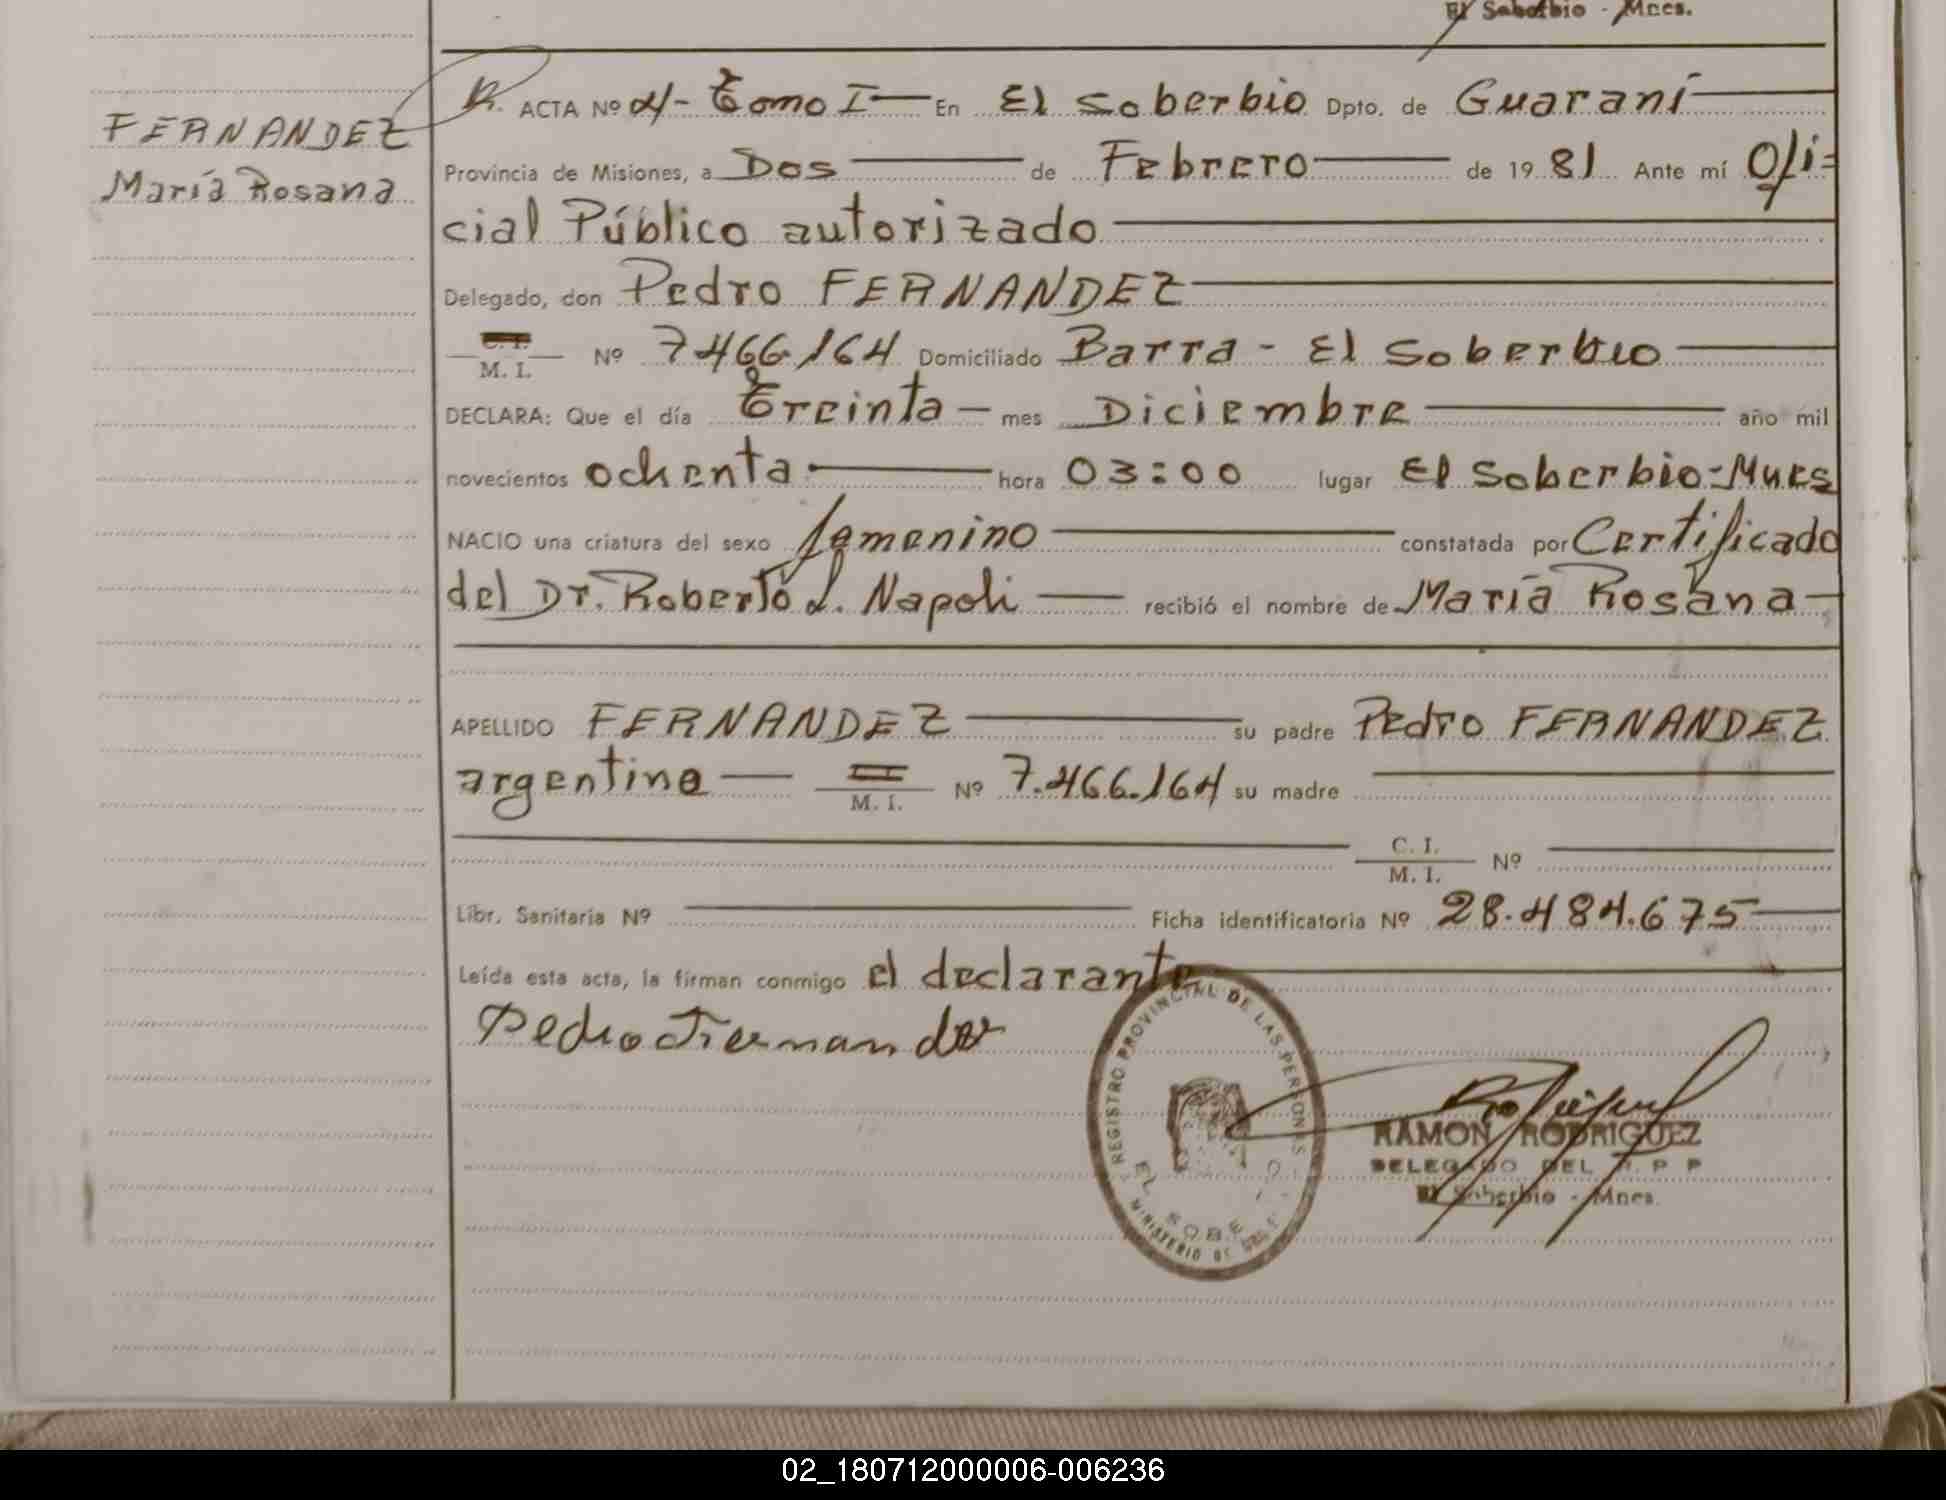 El Soberbio - Mnes.
FERNANDEZ
María Rosana
R. ACTA Nº 4- Tomo I En El Soberbio Dpto. de Guaraní
Provincia de Misiones, a Dos de Febrero de 1981 Ante mí Ofi=
cial Público autorizado
Delegado, don Pedro FERNANDEZ
C. I.
M. I. Nº 7466.164 Domiciliado Barra - El Soberbio
DECLARA: Que el día Treinta - mes Diciembre año mil
novecientos ochenta hora 03:00 lugar El Soberbio-Mnes
NACIO una criatura del sexo femenino constatada por Certificado
del Dr. Roberto L. Napoli recibió el nombre de María Rosana
APELLIDO FERNANDEZ su padre Pedro FERNANDEZ
argentino M. I. Nº 7.466.164 su madre
C. I.
M. I. Nº
Libr. Sanitaria Nº Ficha identificatoria Nº 28.484.675
Leída esta acta, la firman conmigo el declarante
Pedro Fernandez
REGISTRO PROVINCIAL DE LAS PERSONAS
EL SOBE
MINISTERIO DE
RAMON RODRIGUEZ
DELEGADO DEL R. P P
El Soberbio - Mnes.
02_180712000006-006236